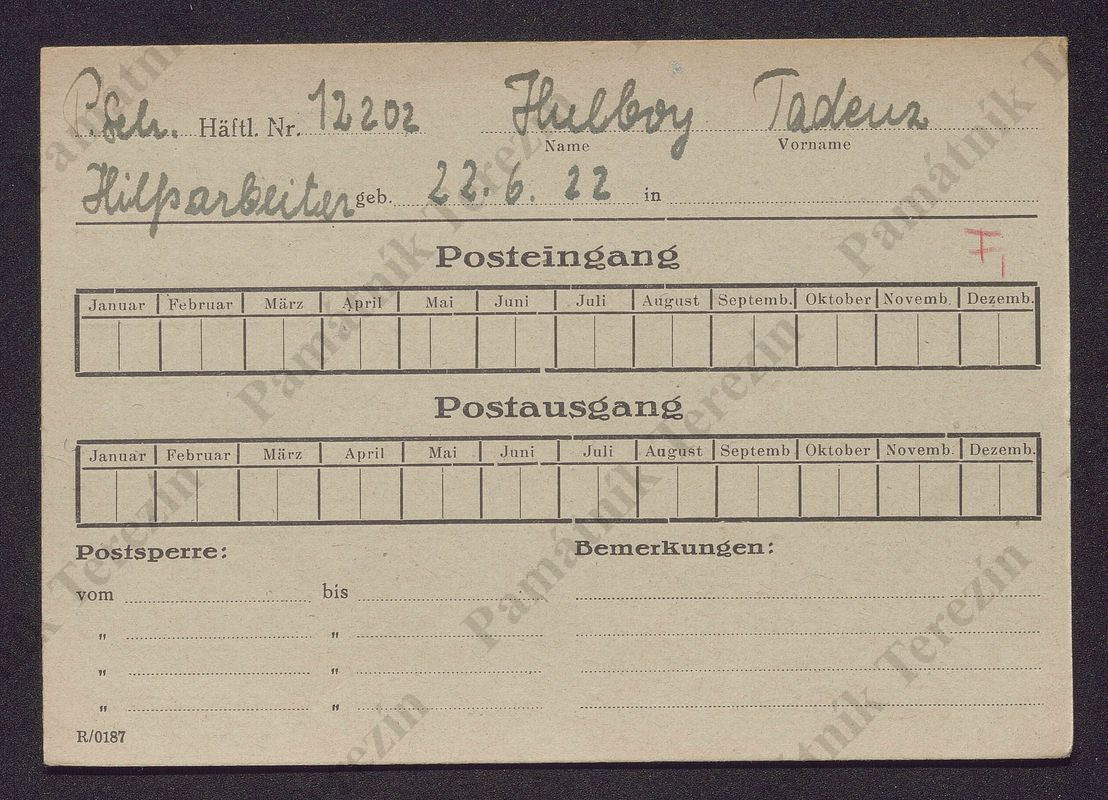 P. Seh. Häftl. Nr. 12202 Hulboy Tadeuz
Name Vorname
Hilfsarbeiter geb. 22. 6. 22 in
Posteingang
Januar Februar März April Mai Juni Juli August Septemb. Oktober Novemb. Dezemb.
Postausgang
Januar Februar März April Mai Juni Juli August Septemb Oktober Novemb. Dezemb.
Postsperre: Bemerkungen:
vom bis
" "
" "
" "
R/0187
Památník Terezín